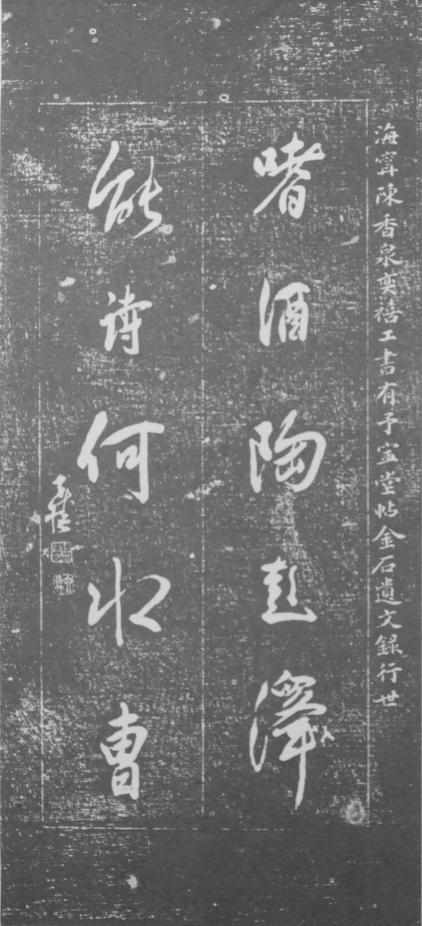 海寧陳香泉奕禧工書有予寧堂帖金石遺文錄行世
嗜酒陶彭澤
能詩何水曹
奕禧